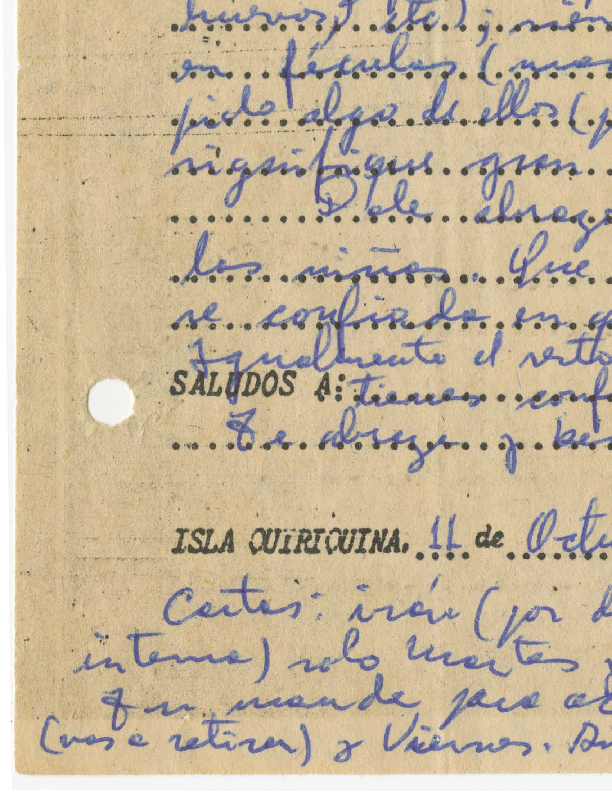 huevos, etc); 
en féculas (
pido algo de ellos (
signifique gran
Dale
los niños. Que
se confiada en
Igualmente el resto
SALUDOS A: tienes conf
Te abrazo y bes
ISLA QUIRIQUINA. 11 de Octu
Cartas: irán (por
interna) solo Martes y
mande para
(vas a retirar) y Viernes.